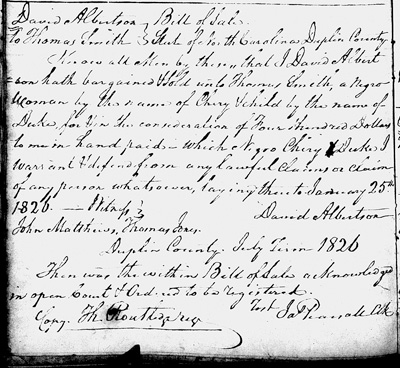 David Albertson Bill of Sale
To Thomas Smith State of North Carolina Duplin County
Know all Men by these that I David Albert
son hath bargained & Sold unto Thomas Smith, a Negro
Woman by the name of Chery & child by the name of
Duke, for & in the consideration of Four Hundred Dollars
to me in hand paid — which Negro Chery & Duke I
warrant & defend from any lawful claims or claim
of any person whatsoever, laying thereto January 25th
1826 —
David Albertson
John Matthews, Thomas Jones.
Duplin County July Term 1826
Then was the within Bill of Sale acknowledged
in open Court & Ordered to be registered.
Test Jas Pearsall Clk
Copy. Th. Routledge